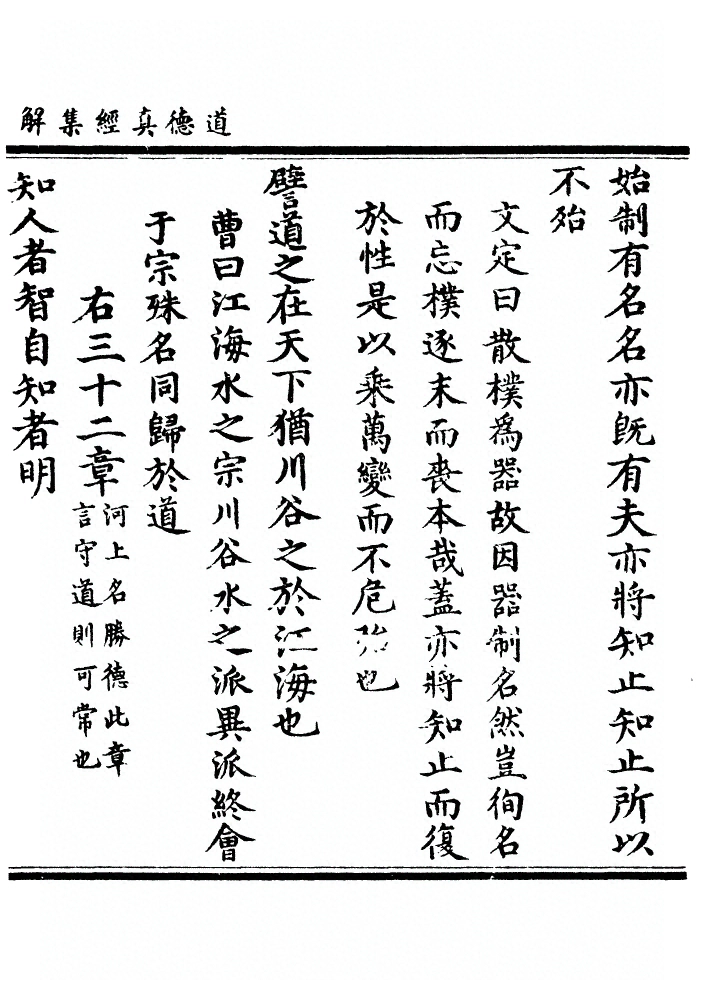 道德真經集解
始制有名名亦既有夫亦將知止知止所以
不殆
文定曰散樸爲器故因器制名然豈徇名
而忘樸逐末而喪本哉蓋亦將知止而復
於性是以乘萬變而不危殆也
譬道之在天下猶川谷之於江海也
曹曰江海水之宗川谷水之派異派終會
于宗殊名同歸於道
右三十二章河上名勝德此章
言守道則可常也
知人者智自知者明